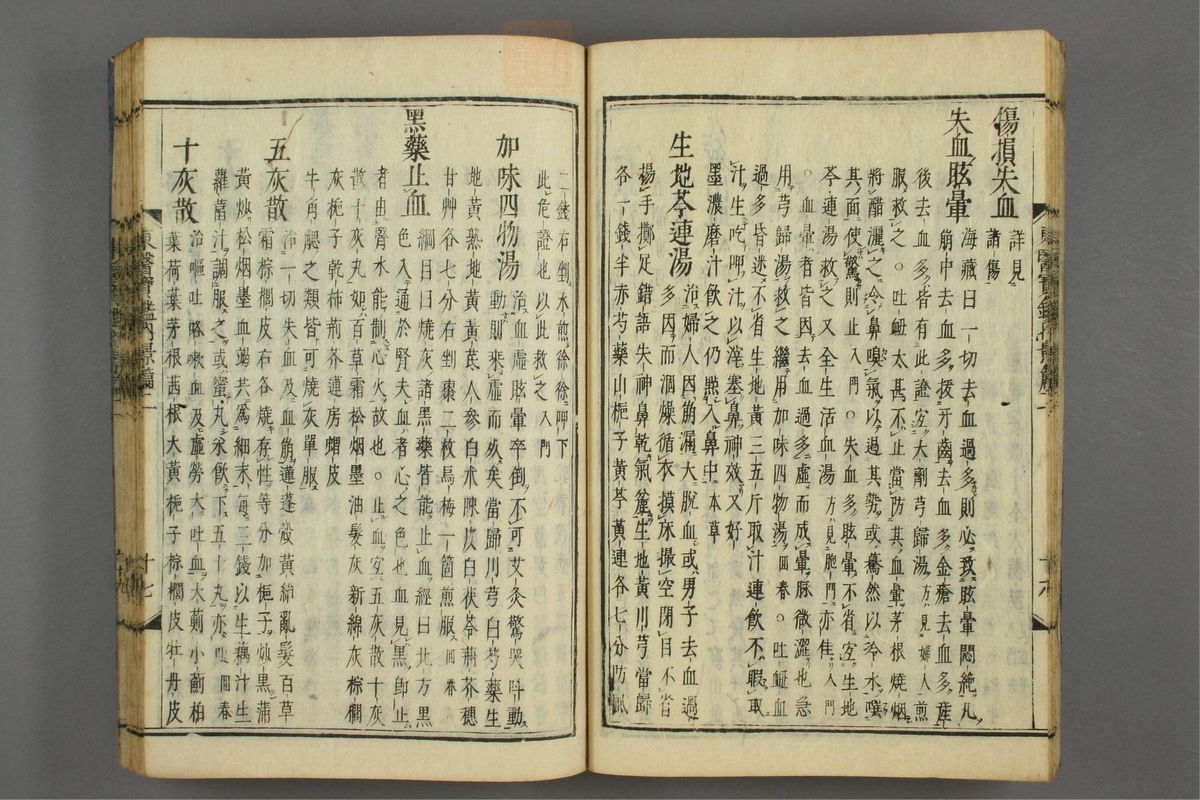 傷損失血 詳見諸傷
失血眩暈 海藏曰一切去血過多則必致眩暈悶絕凡
崩中去血多拔牙齒去血多金瘡去血多產
後去血多皆有此證宜大劑芎歸湯方見婦人煎
服救之○吐衄太甚不止當防其血暈茅根燒烟
將醋灑之令鼻嗅氣以過其勢或驀然以冷水噀
其面使驚則止入門○失血多眩暈不省宜生地
芩連湯救之又全生活血湯方見胞門亦佳入門
○血暈者皆因去血過多虛而成暈脉微澀也急
用芎歸湯救之繼用加味四物湯回春○吐衄血
過多昏迷不省生地黃三五斤取汁連飲不暇取
汁生吃呷汁以滓塞鼻神效又好
墨濃磨汁飮之仍㸃入鼻中本草
生地芩連湯 治婦人因崩漏大脫血或男子去血過
多因而涸燥循衣摸床撮空閉目不省
揚手擲足錯語失神鼻乾氣麤生地黃川芎當歸
各一錢半赤芍藥山梔子黃芩黃連各七分防風
東醫寶鑑內景篇二
十六
二錢右剉水煎徐徐呷下
此危證也以此救之入門
加味四物湯 治血虛眩暈卒倒不可艾灸驚哭叫動
動則乘虛而死矣當歸川芎白芍藥生
地黃熟地黃黃芪人參白朮陳皮白茯苓荊芥穗
甘艸各七分右剉棗二枚烏梅一箇煎服回春
黑藥止血 綱目曰燒灰諸黑藥皆能止血經曰北方黑
色入通於腎夫血者心之色也血見黑卽止
者由腎水能制心火故也○止血宜五灰散十灰
散十灰丸如百草霜松烟墨油髮灰新綿灰棕櫚
灰梔子乾柿荊芥蓮房蝟皮
牛角䚡之類皆可燒灰單服
五灰散 治一切失血及血崩蓮蓬殼黃絹亂髮百草
霜棕櫚皮右各燒存性等分加梔子炒黑蒲
黃炒松烟墨血竭共爲細末每三錢以生藕汁生
蘿葍汁調服之或蜜丸水飮下五十丸亦可回春
十灰散 治嘔吐咯嗽血及虛勞大吐血大薊小薊柏
葉荷葉茅根茜根大黃梔子棕櫚皮牡丹皮
東醫寶鑑內景篇二
十七